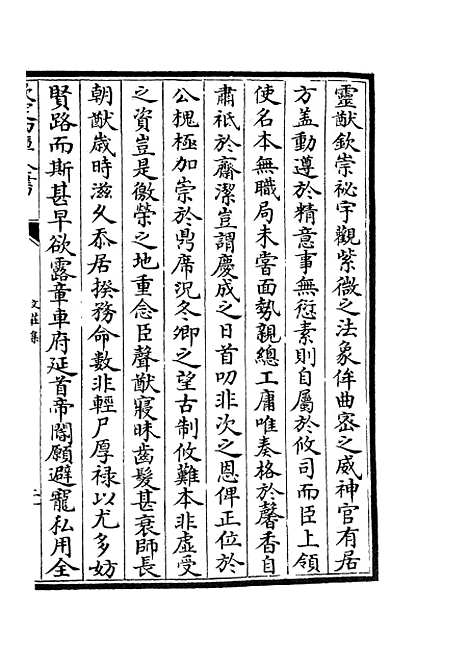 靈猷欽崇祕宇觀紫微之法象侔曲密之威神官有居
方盖動遵於精意事無愆素則自屬於攸司而臣上領
使名本無職局未嘗面勢親總工庸唯奏格於馨香自
肅祗於齋潔豈謂慶成之日首叨非次之恩俾正位於
公槐極加崇於鼎席況冬卿之望古制攸難本非虛受
之資豈是徼榮之地重念臣聲猷寢昧齒髮甚衰師長
朝猷歲時滋久忝居揆務命數非輕尸厚禄以尤多妨
賢路而斯甚早欲露章車府延首帝閽願避寵私用全
文莊集